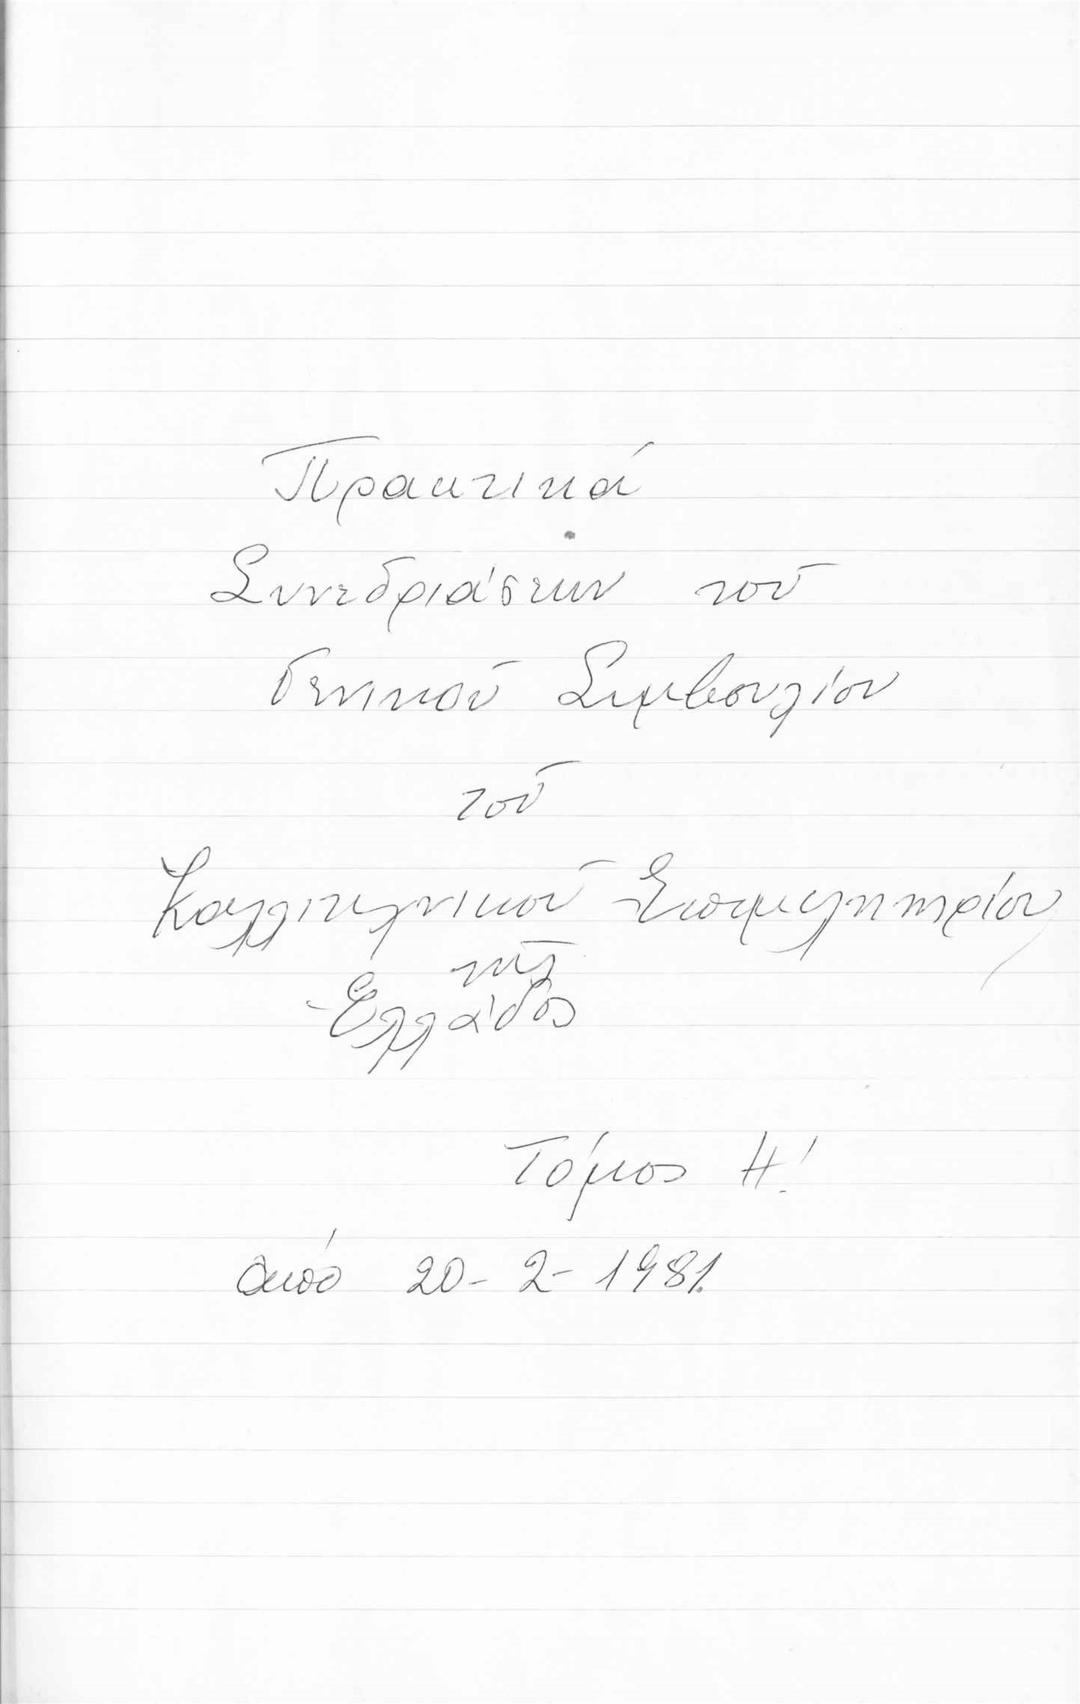 Πρακτικά
Συνεδριάσεων τοῦ
Γενικοῦ Συμβουλίου
τοῦ
Καλλιτεχνικοῦ Ἐπιμελητηρίου
τῆς
Ἑλλάδος
Τόμος Η!
ἀπό 20-2-1981.